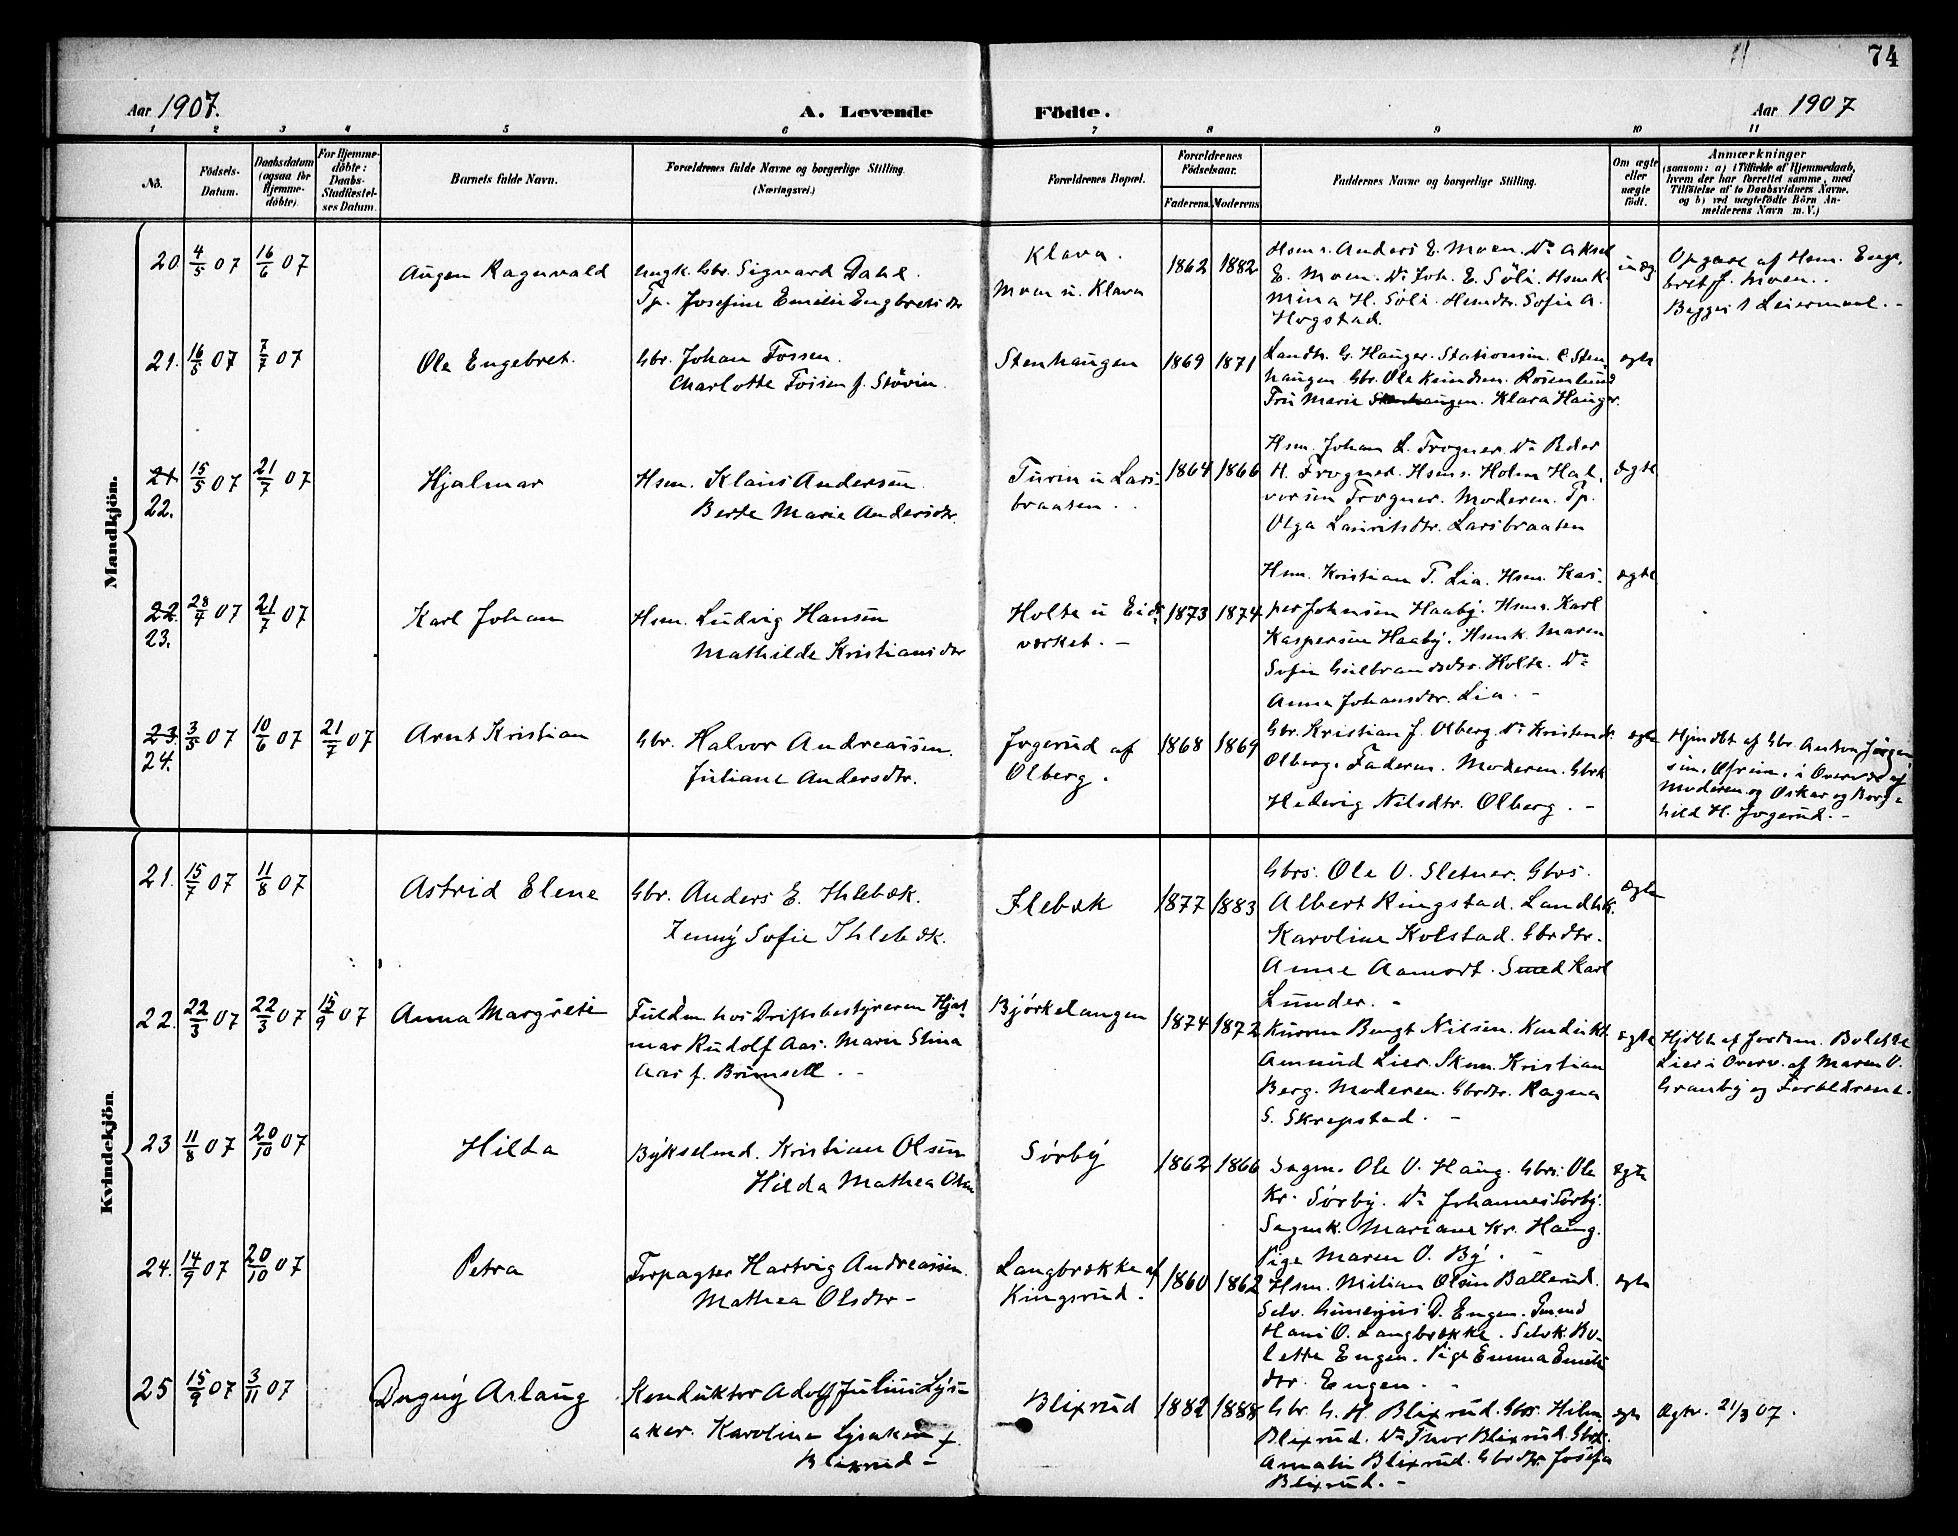 74
Aar 1907.
A. Levende
Födte.
Aar 1907
1 2 3 4 5 6 7 8 9 10 11
No.
Födsels-
Datum.
Daabsdatum
(ogsaa for
Hjemme-
döbte)
For Hjemme-
döbte:
Daabs-
Stadfæstel-
ses Datum.
Barnets fulde Navn.
Forældrenes fulde Navne og borgerlige Stilling.
(Næringsvei.)
Forældrenes Bopæl.
Forældrenes
Födselsaar.
Faderens. Moderens.
Faddernes Navne og borgerlige Stilling.
Om ægte
eller
uægte
födt.
Anmærkninger
(saasom: a) i Tilfælde af Hjemmedaab,
hvem der har forrettet samme, med
Tilföielse af to Daabsvidners Navne.
og b) ved uægtefödte Börn An-
melderens Navn m. V.)
Mandkjön.
20. 4/5 07 16/6 07
Augen Ragnvald
Ungk. Gbr. Sigvard Dahl.
Tp. Josefine Emilie Engbretsdtr
Klava.
Moen u. Klava
1862 1882
Hsms. Anders E. Moen. Do Aksel
E. Moen. Do Joh. E. Söli. Hsmk.
Mina H. Söli. Hsmdtr. Sofie A.
Hogstad.
uæg
Opgave af Hsm. Enge-
bret J. Moen.
Begges 1 Leiermaal.
21. 16/5 07 7/7 07
Ole Engebret.
Gbr. Johan Fossen.
Charlotte Fossen f. Stövin.
Stenhaugen
1869 1871
Landh. G. Hauger. Stationsm. C. Sten
haugen Gbr. Ole Knudsen. Rosenlund
Fru Marie Stenhaugen. Klara Hauger.
ægte
21 22. 15/5 07 21/7 07
Hjalmar
Hsm. Klaus Andersen.
Berte Marie Andersdtr.
Turin u Lars-
braaten.
1864 1866
Hsm. Johan L. Frogner. Do Peder
H. Frogner. Hsms. Holm Hal-
vorsen Frogner. Moderen. Tp.
Olga Lauritsdtr. Larsbraaten
ægte
22. 23. 28/4 07 21/7 07
Karl Johan
Hsm. Ludvig Hansen
Mathilde Kristiansdtr
Holte u Eids
verket. -
1873 1874
Hsm. Kristian T. Lia. Hsm. Kas-
per Johnsen Haaby. Hsms. Karl
Kaspersen Haaby. Hsmk. Maren
Sofie Gulbrandsdtr. Holte. Do
Anna Johansdtr. Lia. -
ægte
23. 24. 3/5 07 10/6 07 21/7 07
Arnt Kristian
Gbr. Halvor Andreassen.
Juliane Andersdtr.
Jogerud af
Olberg.
1868 1869
Gbr. Kristian J. Olberg. Do Kristen
Olberg. Faderen. Moderen. Gbrk
Hedevig Nilsdtr. Olberg. -
ægte
Hjmdbt af Gbr. Anton Jörgen
sen. i Overvær af
Moderen og Oskar og Borg-
hild H. Jogerud. -
Kvindekjön.
21. 15/7 07 11/8 07
Astrid Elene
Gbr. Anders E. Ihlebæk.
Jenny Sofie Ihlebæk.
Ilebæk
1877 1883
Gbrs. Ole O. Sletner. Gbrs.
Albert Ringstad. Landhk.
Karoline Kolstad. Gbrdtr.
Anne Aamodt. Smed Karl
Lunder. -
ægte
22. 22/3 07 22/3 07 15/9 07
Anna Margrete
Fuldm. hos Driftsbestyreren Hjal-
mar Rudolf Aas. Marie Stina
Aas f. Brunsell. -
Björkelangen
1874 1872
Bengt Nilsen. Kondukt.
Amund Lier. Skm. Kristian
Berg. Moderen. Gbrdtr. Ragna
S. Skrepstad. -
ægte
Hjdbt af Jordm. Bolette
Lier i Overv. af Maren O.
Granby og Forældrene.
23 11/8 07 20/10 07
Hilda
Bykselmd. Kristian Olsen
Hilda Mathea Olsen
Sörby
1862 1866
Sagm. Ole O. Haug. Gbrs. Ole
Kr. Sörby. Do Johannes Sörby.
Sagmk. Mariane Kr. Haug.
Pige Maren O. By. -
ægte
24. 14/9 07 20/10 07
Petra
Forpagter Hartvig Andreassen.
Mathea Olsdtr -
Langbrække af
Kingsrud.
1860 1862
Hsm. Milian Olsen Ballerud.
Selv. D. Engen.
Hans O. Langbrække. Selvk. Bo-
lette Engen. Pige Emma Emils
dtr. Engen. -
ægte
25 15/9 07 3/11 07
Dagny Aslaug
Konduktør Adolf Julius Lys-
aker. Karoline Lysaker f.
Blixrud -
Blixrud
1882 1888
Gbr. G. H. Blixrud. Gbr. Hilm.
Blixrud. Do Thor Blixrud. Gbrk.
Amalie Blixrud. Gbrdtr. Josefa
Blixrud. -
ægte
Ægtev. 21/3 07.